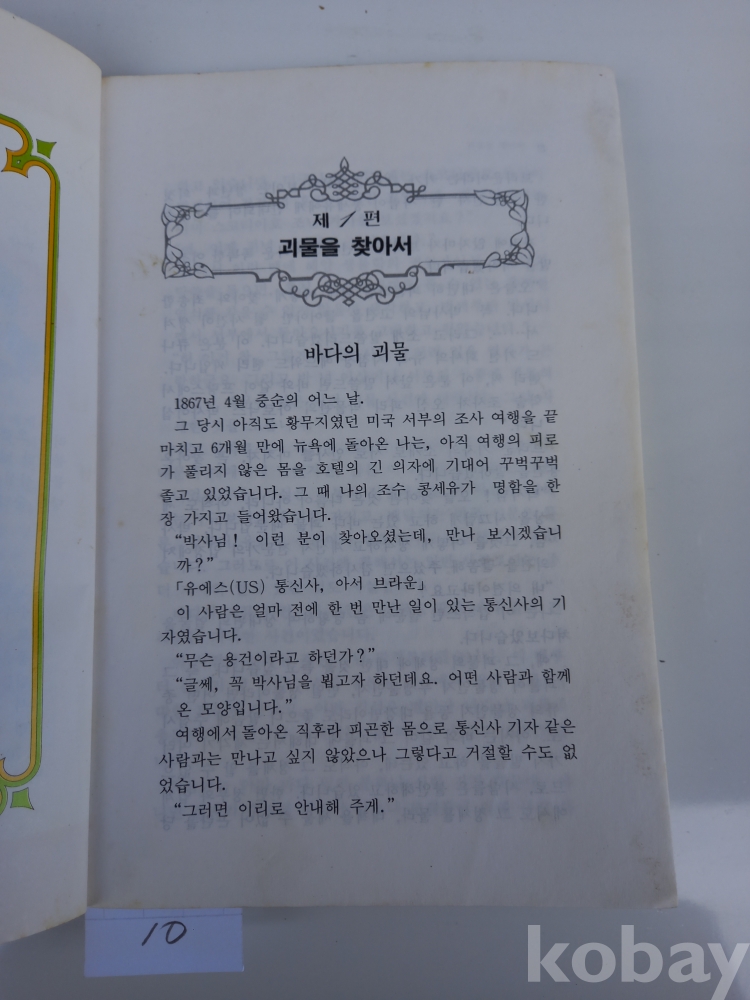 제 1 편
괴물을 찾아서
바다의 괴물
1867년 4월 중순의 어느 날.
그 당시 아직도 황무지였던 미국 서부의 조사 여행을 끝
마치고 6개월 만에 뉴욕에 돌아온 나는, 아직 여행의 피로
가 풀리지 않은 몸을 호텔의 긴 의자에 기대어 꾸벅꾸벅
졸고 있었습니다. 그 때 나의 조수 콩세유가 명함을 한
장 가지고 들어왔습니다.
“박사님! 이런 분이 찾아오셨는데, 만나 보시겠습니
까?”
「유에스(US) 통신사, 아서 브라운」
이 사람은 얼마 전에 한 번 만난 일이 있는 통신사의 기
자였습니다.
“무슨 용건이라고 하던가?”
“글쎄, 꼭 박사님을 뵙고자 하던데요. 어떤 사람과 함께
온 모양입니다.”
여행에서 돌아온 직후라 피곤한 몸으로 통신사 기자 같은
사람과는 만나고 싶지 않았으나 그렇다고 거절할 수도 없
었습니다.
“그러면 이리로 안내해 주게.”
10
kobay